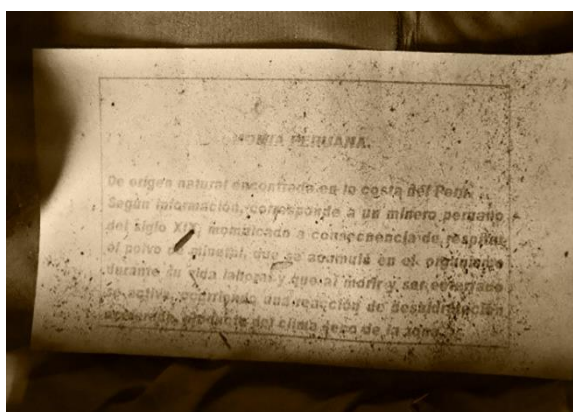 MOMIA PERUANA.
De origen natural encontrada en la costa del Perú.
Según información, corresponde a un minero peruano
del siglo XIX, momificado a consecuencia de respirar
el polvo de mineral, que se acumuló en el organismo
durante su vida laboral y que al morir y ser enterrado
se activa, ocurriendo una reacción de deshidratación
producto del clima seco de la zona.